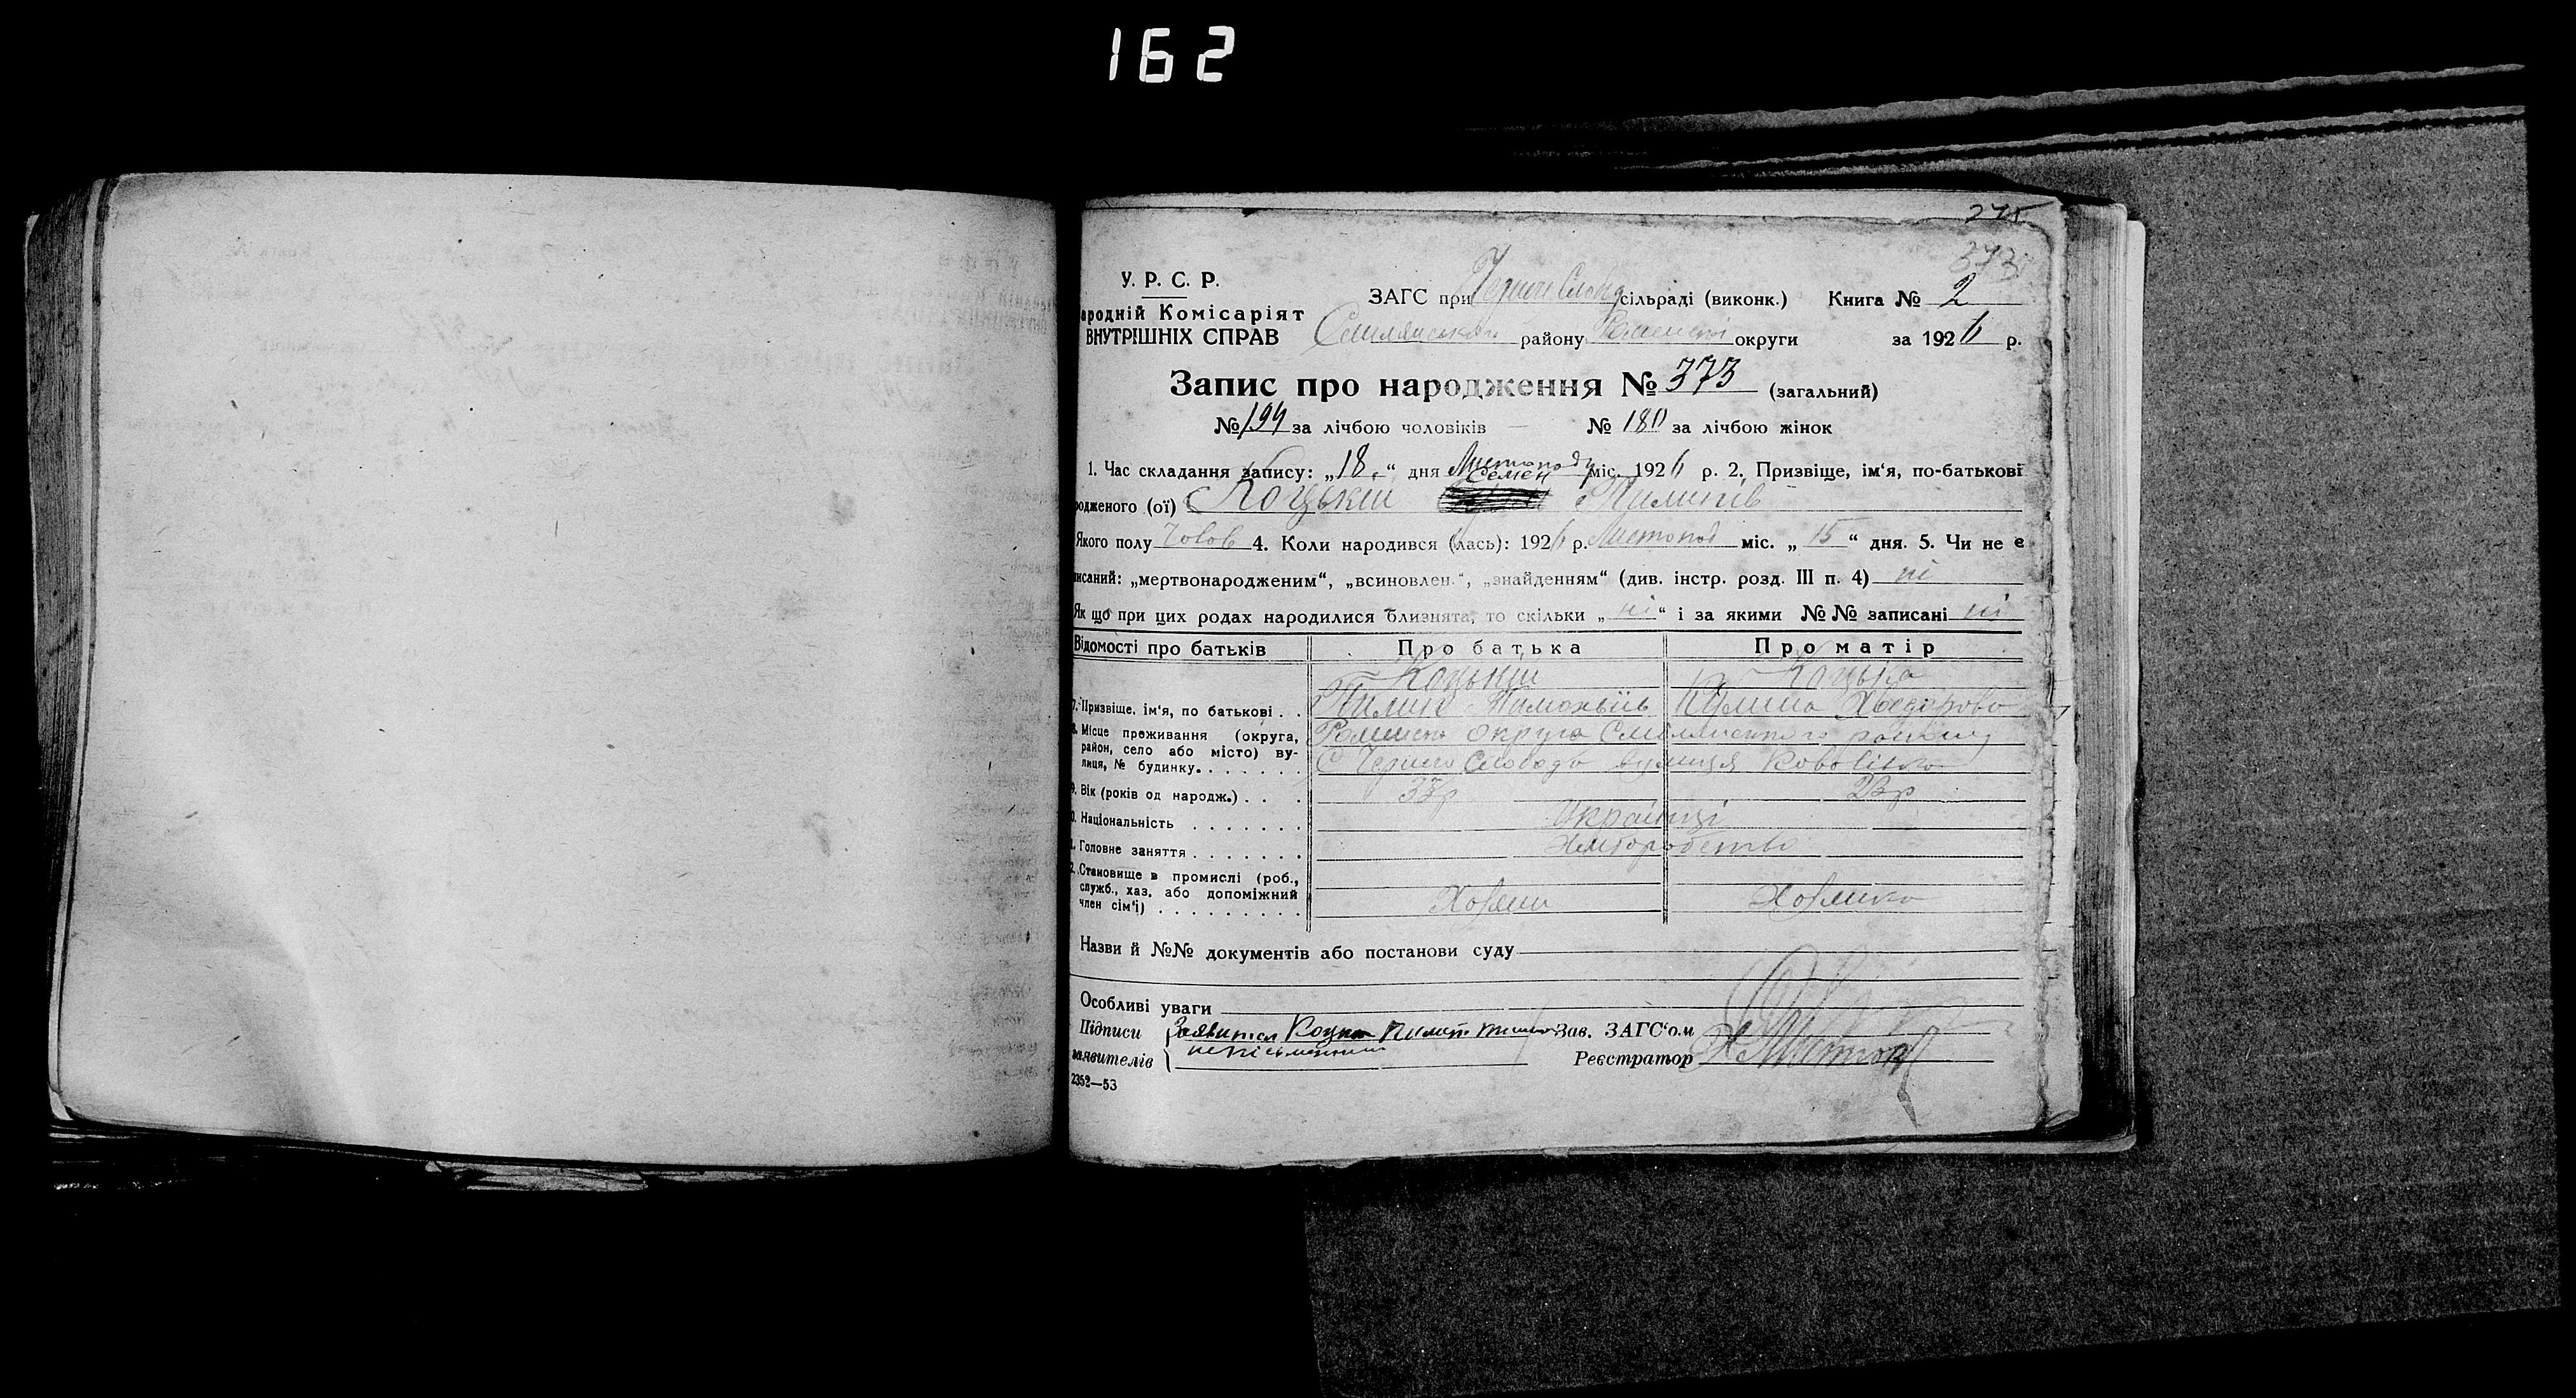 162
275
373
У. Р. С. Р.
ародній Комісаріят
ВНУТРІШНІХ СПРАВ
ЗАГС при Черин Слобод сільраді (виконк.) Книга № 2
району округи за 1926 р.
Запис про народження № 373 (загальний)
№ 194 за лічбою чоловіків — № 180 за лічбою жінок
1. Час складання запису: „18.“ дня Листопаду міс. 1926 р. 2. Призвіще, ім‘я, по-батькові
Семен
родженого (ої) Коцький Пилипів
Якого полу Чолов 4. Коли народився (лась): 1926 р. Листопад міс. „15“ дня. 5. Чи не є
писаний: „мертвонародженим“, „всиновлен.“, „знайденням“ (див. інстр. розд. III п. 4) ні
Як що при цих родах народилися близнята, то скільки „ні“ і за якими №№ записані ні
Відомості про батьків Про батька Про матір
Коцький Коцька
7. Призвіще, ім‘я, по батькові . . Пилип Хведорово
8. Місце проживання (округа, округа району
район, село або місто) ву-
лиця, № будинку. . . . . . . С Черино Слобода вулиця
9. Вік (років од народж.) . . . 33р 23р
10. Національність . . . . . . . Українці
11. Головне заняття . . . . . . . Хліборобство
12. Становище в промислі (роб.,
служб., хаз. або допоміжний
член сім‘ї) . . . . . . . . . Хозяин Хозяйка
Назви й №№ документів або постанови суду
Особливі уваги
Підписи Заявител Коцки Пилип Зав. ЗАГС‘ом
заявителів неписьменний Реєстратор
2352—53